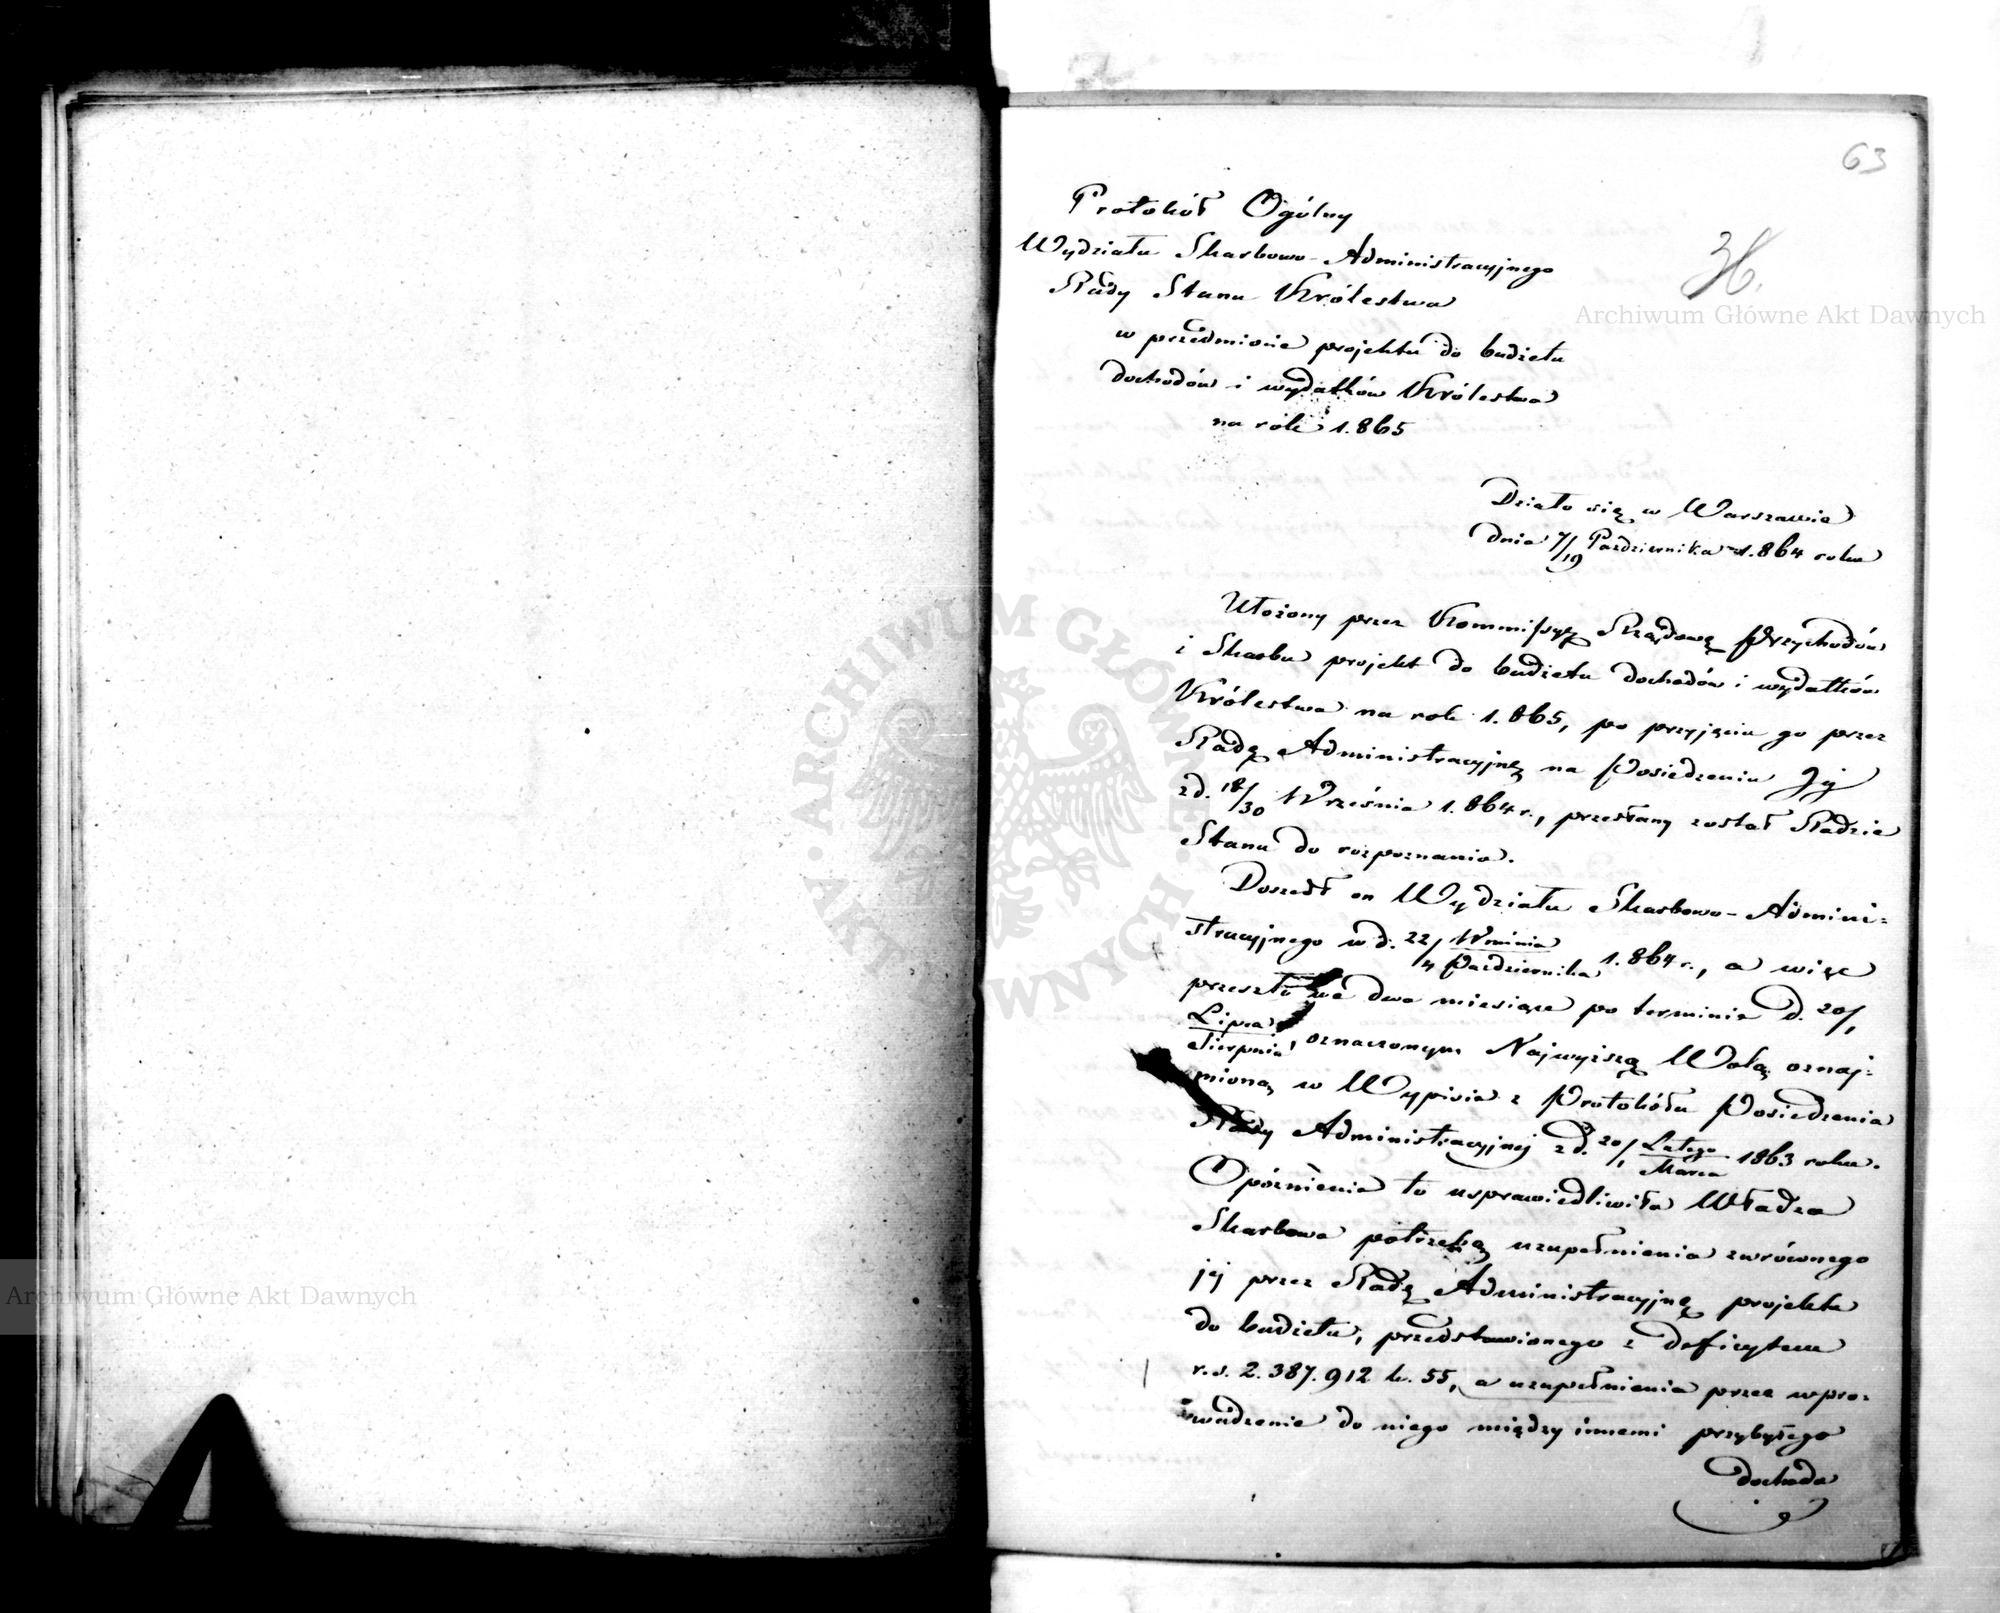 63
36.
Protokół Ogólny
Wydziału Skarbowo-Administracyjnego
Rady Stanu Królestwa
w przedmiocie projektu do budżetu
dochodów i wydatków Królestwa
na rok 1.865
Działo się w Warszawie
dnia 7/19 Października 1.864 roku
Ułożony przez Kommissyę Rządową Przychodów
i Skarbu projekt do budżetu dochodów i wydatków
Królestwa na rok 1.865, po przyjęciu go przez
Radę Administracyjną na Posiedzeniu Jej
z d. 18/30 Września 1.864 r., przesłany został Radzie
Stanu do rozpoznania.
Doszedł on Wydziału Skarbowo-Admini=
stracyjnego w d. 22/4 Września/Października 1.864 r., a więc
przeszło we dwa miesiące po terminie d. 20/1
Lipca/Sierpnia, oznaczonym Najwyższą Wolą oznaj=
mioną w Wypisie z Protokółu Posiedzenia
Rady Administracyjnej z d. 20/1 Lutego/Marca 1863 roku.
Opóźnienie to usprawiedliwiła Władza
Skarbowa potrzebą uzupełnienia zwróconego
jej przez Radę Administracyjną projektu
do budżetu, przedstawionego z deficytem
r.s. 2.387.912 k. 55, a uzupełnienia przez wpro=
wadzenie do niego między innemi przybyłego
dochodu
Archiwum Główne Akt Dawnych
Archiwum Główne Akt Dawnych
ARCHIWUM GŁÓWNE AKT DAWNYCH